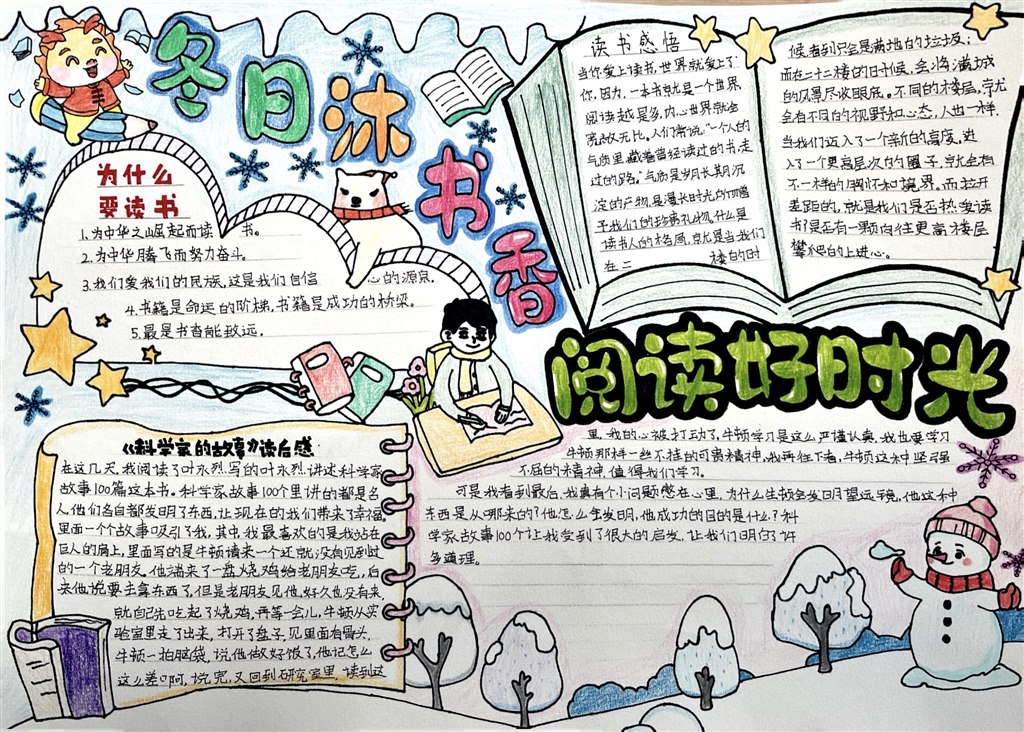 冬日沐书香
为什么
要读书
1.为中华之崛起而读书。
2.为中华腾飞而努力奋斗。
3.我们爱我们的民族,这是我们自信心的源泉.
4.书籍是命运的阶梯,书籍是成功的桥梁.
5.最是书香能致远.
读书感悟
当你爱上读书,世界就爱上了
你,因为,一本书就是一个世界
阅读越是多,内心世界就会
宽敞无比,人们常说:"一个人的
气质里藏着曾经读过的书,走
过的路。"气质是岁月长期沉
淀的产物,是漫长时光赠
予我们的珍贵礼物,什么是
读书人的格局,就是当我们
在二楼的时
候看到只会是满地的垃圾;
而在二十二楼的时候,会将满城
的风景尽收眼底。不同的楼层,就
会有不同的视野和心态,人也一样.
当我们迈入了一个新的高度,进
入了一个更高层次的圈子,就会有
不一样的胸怀和境界。而拉开
差距的,就是我们是否热爱读
书?是否有一颗向往更高楼层
攀爬的上进心。
阅读好时光
《科学家的故事》读后感
在这几天,我阅读了叶永烈,写的叶永烈讲述科学家
故事100篇这本书。科学家故事100个里讲的都是名
人,他们各自都发明了东西,让现在的我们带来了幸福.
里面一个个故事吸引了我,其中,我最喜欢的是我站在
巨人的肩上,里面写的是牛顿请来一个近就没有见到过
的一个老朋友,他端来了一盘烧鸡给老朋友吃,后
来他说要去拿东西了,但是老朋友见他,好久也没有来
就自己先吃起了烧鸡,再等一会儿,牛顿从实
验室里走了出来,打开了盘子,见里面有骨头.
牛顿一拍脑袋,说他做好饭了,他记怎么
这么差啊,说完,又回到研究室里,读到这
里,我的心被打动了,牛顿学习是这么严谨认真,我也要学习
牛顿那样一丝不挂的可贵精神,我再往下看,牛顿这种坚强
不屈的精神,值得我们学习。
可是我看到最后,我真有个小问题感在心里,为什么牛顿会发明望远镜,他这种
东西是从哪来的?他怎么会发明,他成功的目的是什么?科
学家故事100个让我受到了很大的启发,让我们明白了许
多道理。